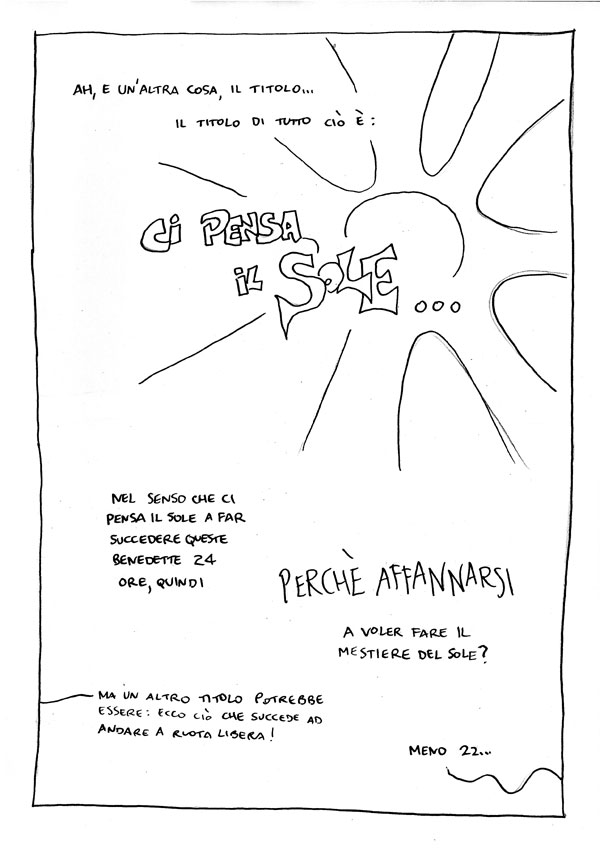 AH, E UN'ALTRA COSA, IL TITOLO...
IL TITOLO DI TUTTO CIÒ È:
CI PENSA
IL SOLE...
NEL SENSO CHE CI
PENSA IL SOLE A FAR
SUCCEDERE QUESTE
BENEDETTE 24
ORE, QUINDI
PERCHÈ AFFANNARSI
A VOLER FARE IL
MESTIERE DEL SOLE?
MA UN ALTRO TITOLO POTREBBE
ESSERE: ECCO CIÒ CHE SUCCEDE AD
ANDARE A RUOTA LIBERA!
MENO 22...